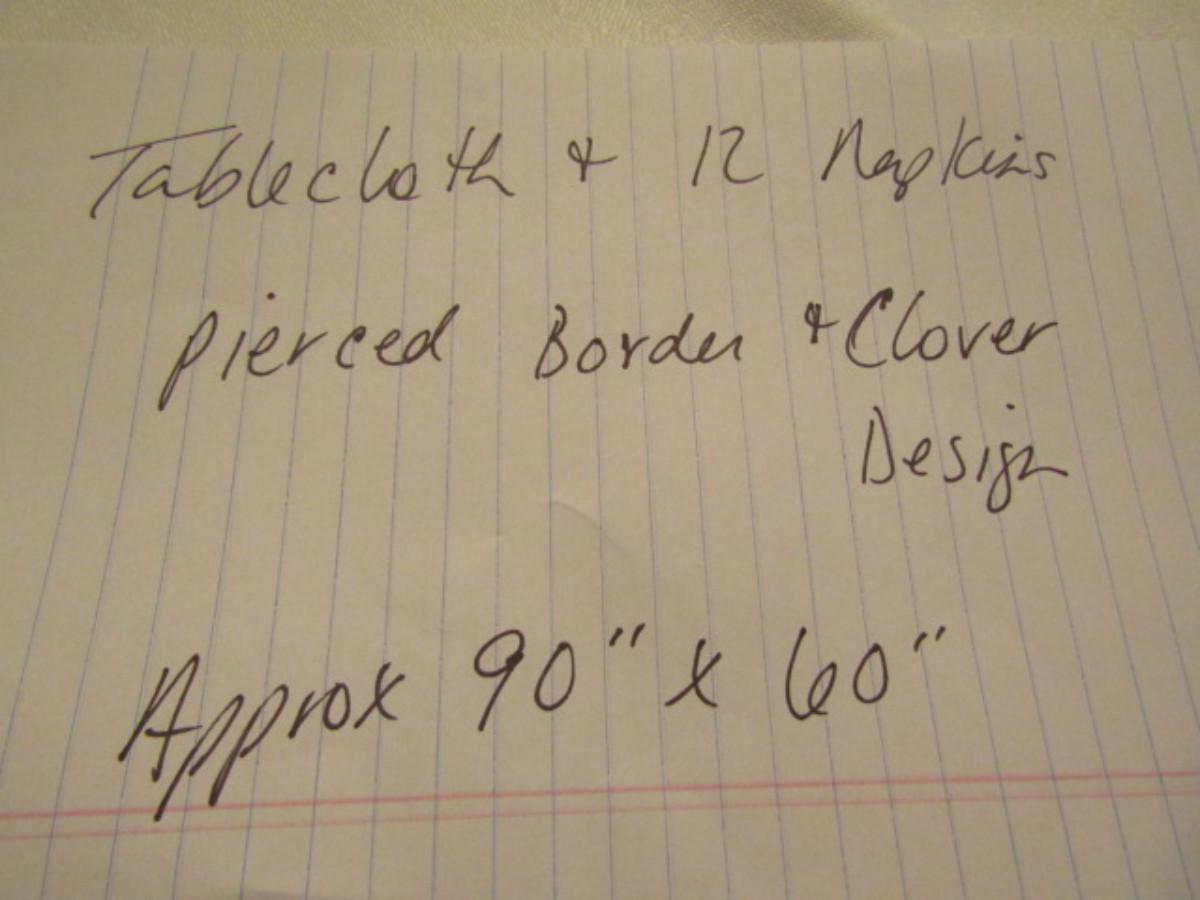 Tablecloth & 12 Napkins
Pierced Border & Clover
Design
Approx 90" x 60"